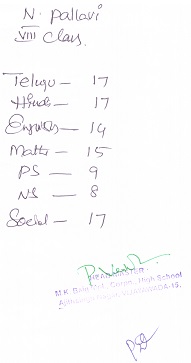 N. Pallavi
VIII Class.
Telugu — 17
Hindi — 17
English — 14
Maths — 15
PS — 9
NS — 8
Social — 17
HEADMASTER
High School